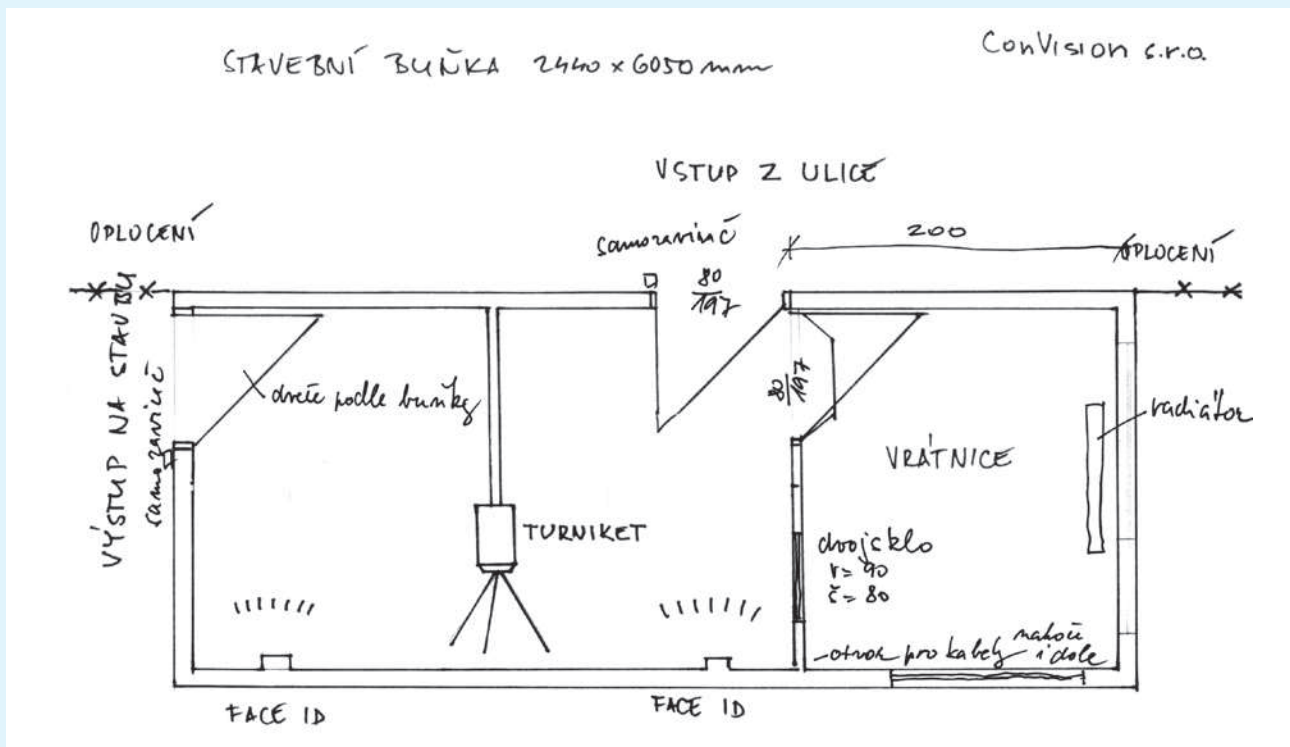 STAVEBNÍ BUŇKA 2440 x 6050 mm
ConVision s.r.o.
VSTUP Z ULICE
OPLOCENÍ
samozavírač
200
OPLOCENÍ
80
197
VÝSTUP NA STAVBU
samozavírač
dveře podle buňky
80
197
radiátor
VRÁTNICE
TURNIKET
dvojsklo
v= 90
č= 80
otvor pro kabely nahoře
i dole
FACE ID
FACE ID